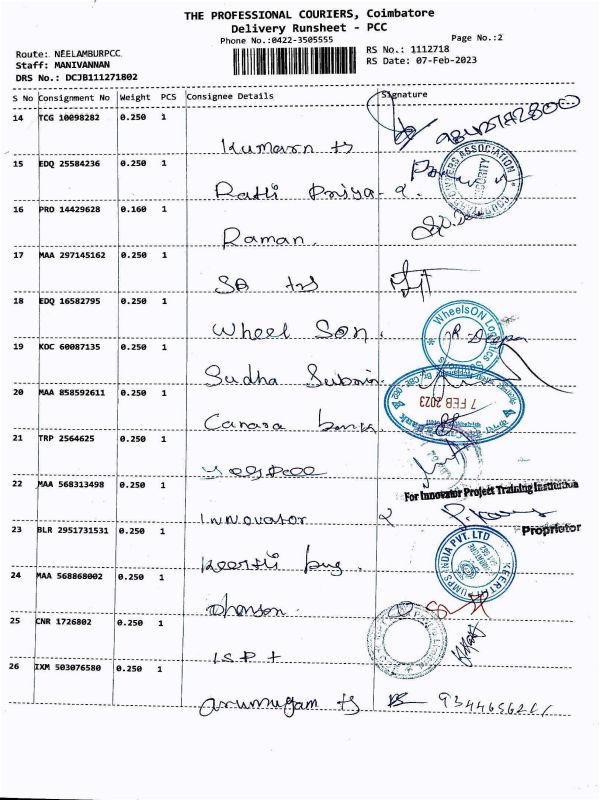 THE PROFESSIONAL COURIERS, Coimbatore
Delivery Runsheet - PCC
Phone No.:0422-3505555
Page No.:2
Route: NEELAMBURPCC
RS No.: 1112718
Staff: MANIVANNAN
RS Date: 07-Feb-2023
DRS No.: DCJB111271802
S No Consignment No Weight PCS Consignee Details Signature
14 TCG 10098282 0.250 1
Kumaran ts
15 EDQ 25584236 0.250 1
Rathi Priya
16 PRO 14429628 0.160 1
Raman.
17 MAA 297145162 0.250 1
18 EDQ 16582795 0.250 1
Wheel Son.
WheelsON Logistics
19 KDC 60087135 0.250 1
Sudha
20 MAA 858592611 0.250 1
Canara bank
7 FEB 2023
21 TRP 2564625 0.250 1
22 MAA 568313498 0.250 1
For Innovator Project Training Institution
Innovator
Proprietor
23 BLR 2951731531 0.250 1
Keerthi
PUMPS INDIA PVT. LTD
24 MAA 568868002 0.250 1
25 CNR 1726802 0.250 1
26 IXM 503076580 0.250 1
Arumugam ts